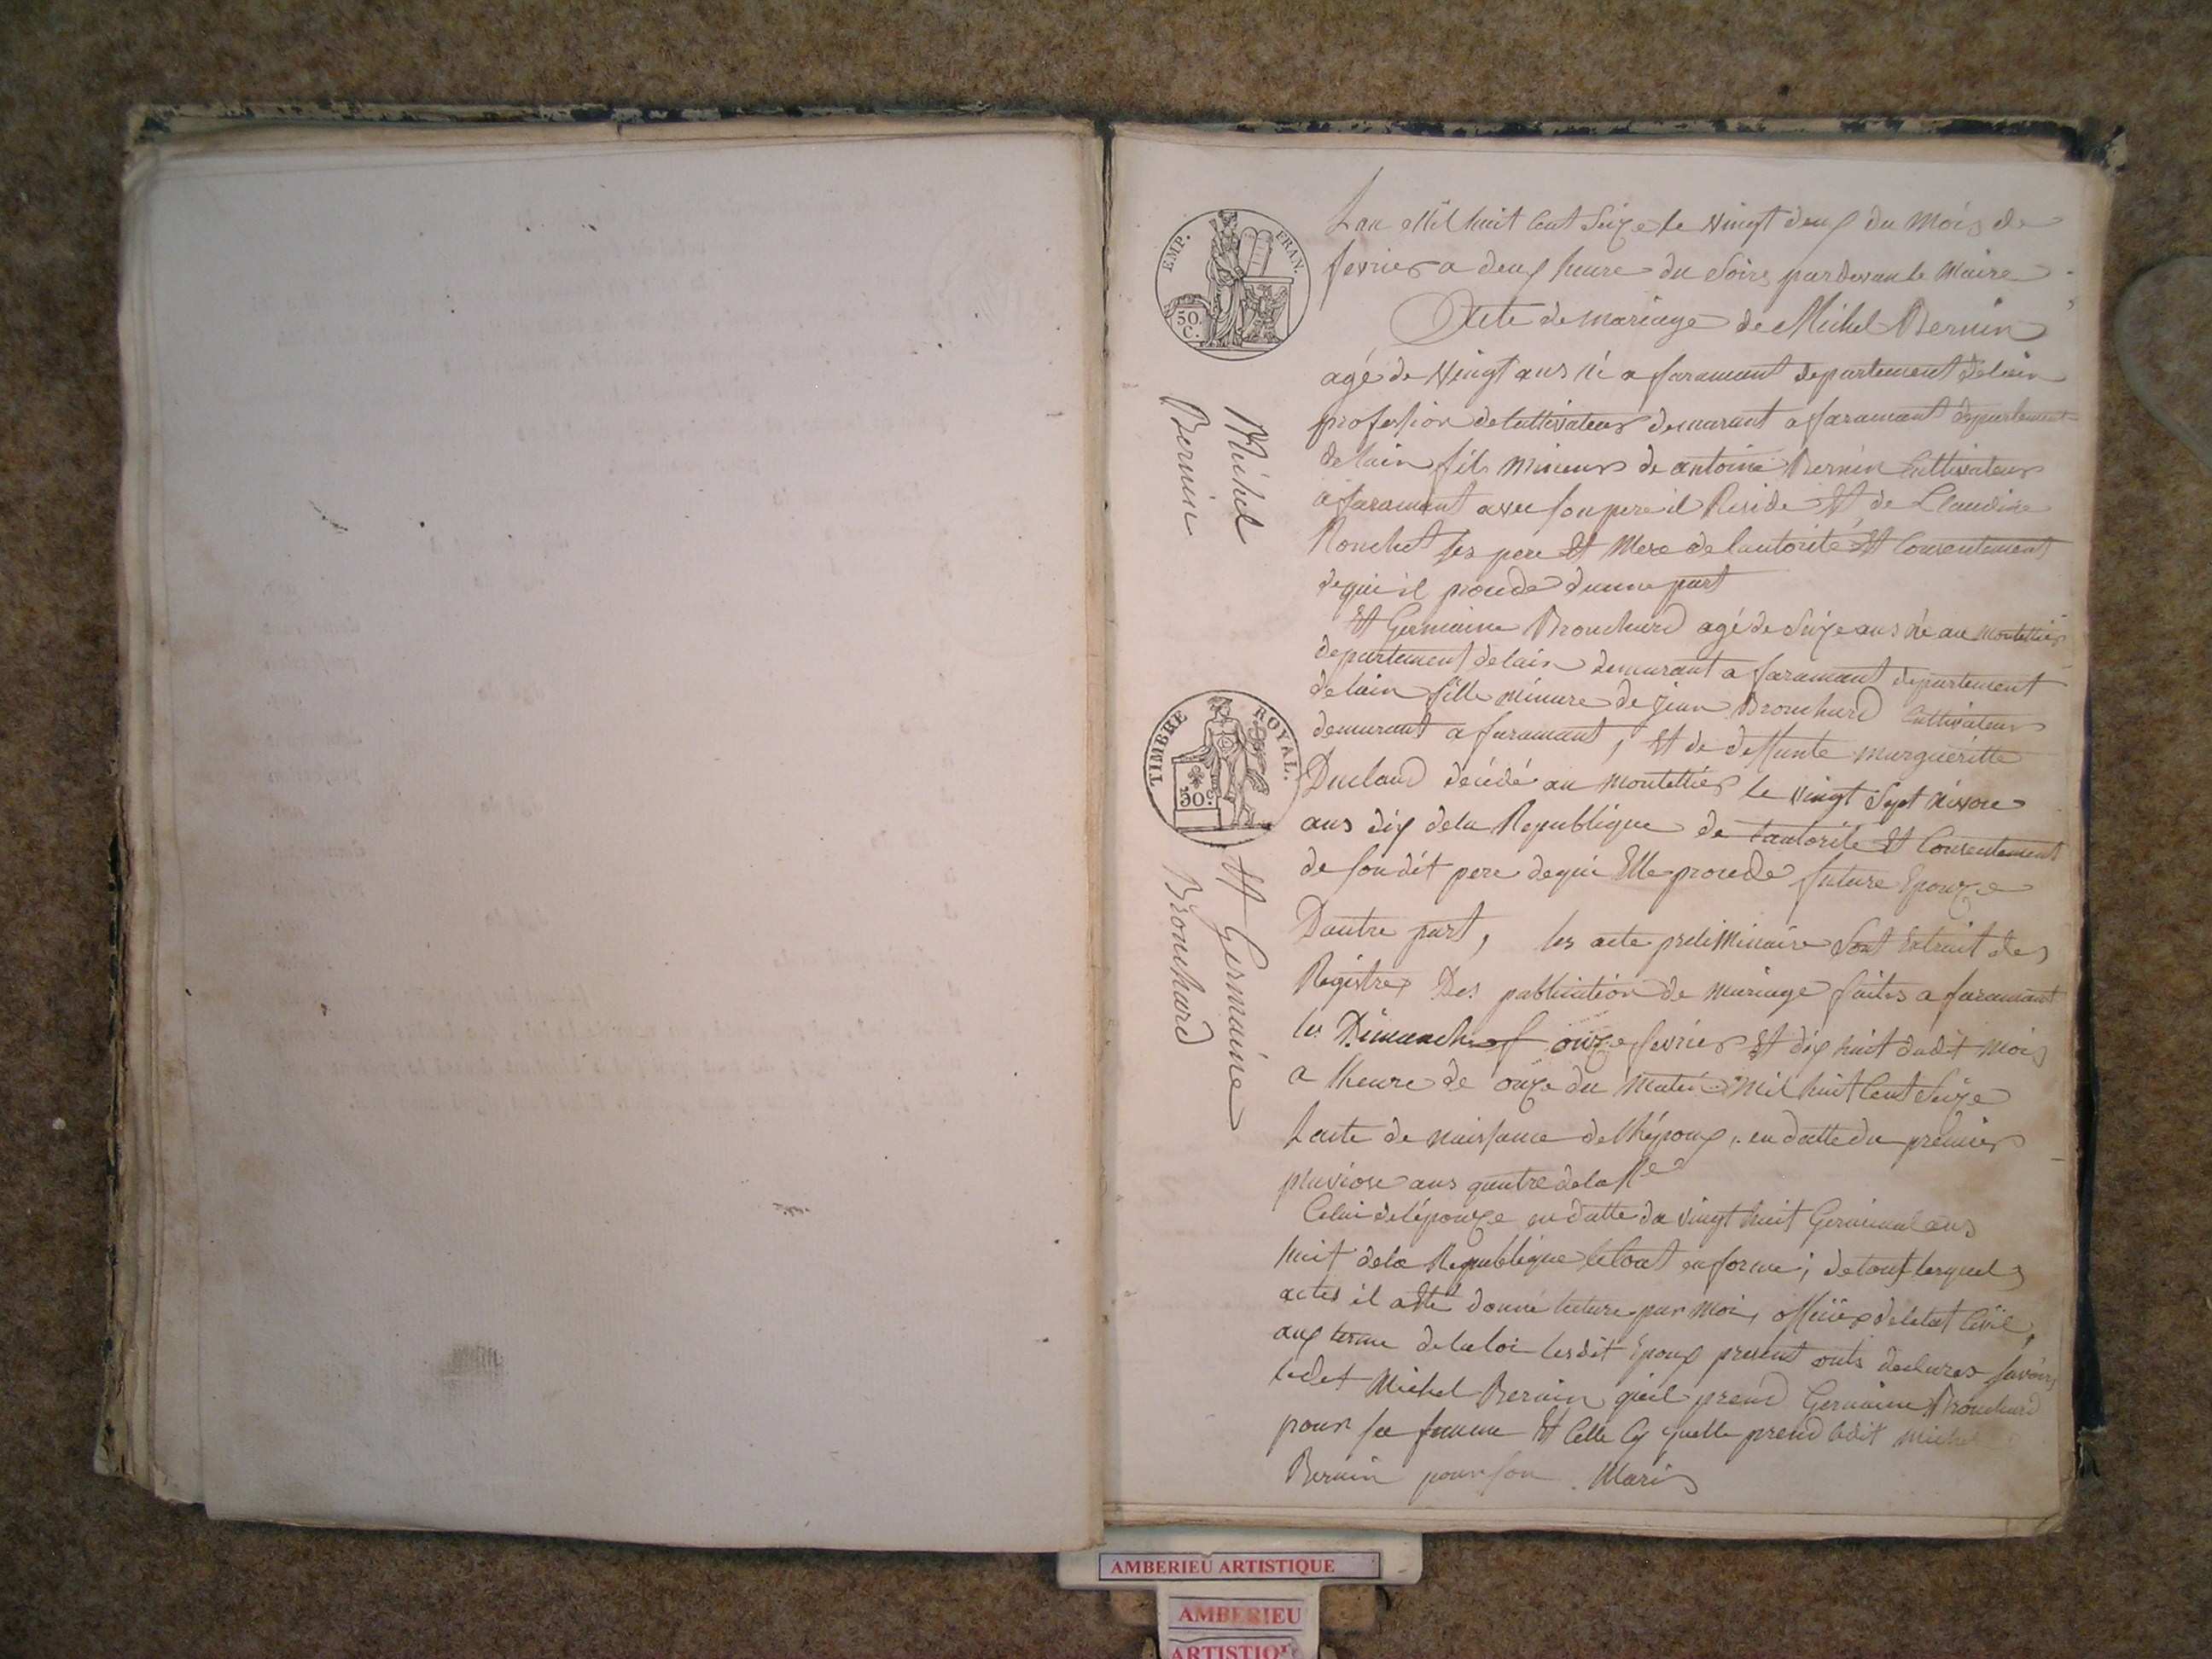 EMP. FRAN.
50 c.
Michel
Bernin
TIMBRE ROYAL.
50 c.
Et Germaine
Brouchard
Lan Mil huit Cent Seize le Vingt deux du Mois de
fevrier a deux heure du Soire pardevant le Maire
Acte de mariage de Michel Bernin
agé de Vingt ans né a faramant departement delain
profession de Cultivateur demurant a faramant departement
de lain fils mineur de antoine Bernin Cultivateur
a faramant avec son pere il Reside Et de Claudine
Ronchet ses pere Et Mere de lautorité Et Consentement
de qui il procede dune part
Et Germaine Brouchard agé de Seize ans né au Montellier
departement delain demurant a faramant departement
de lain fille minure de Jean Brouchard Cultivateur
demurant a faramant, Et de deffunte margueritte
Duclaud decédé au Montellier le Vingt Sept nivose
ans dix dela Republique de lautorité Et Consentement
de son dit pere de qui Elle procede future Epouze
Dautre part, les acte preliminaire Sont Extrait des
Registres Des publication de mariage faites a faramant
les Dimanche onze fevrier Et dix huit dudit mois
a lheure de onze du matin mil huit Cent Seize
Lacte de naissance de lhépoux, en datte du premier
pluviose ans quatre dela Re
Celui de lépouze en datte du vingt huit Germinal ans
huit dela Republique le tout en forme; de tout lesquels
actes il a Eté donné lecture par moi, officier deletat Civil,
aux terme de la loi lesdit Epoux present onts declares savoir
ledit Michel Bernin qu'il prend Germaine Brouchard
pour sa femme Et Celle Cy quelle prend ledit michel
Bernin pour son Maris
AMBERIEU ARTISTIQUE
AMBERIEU
ARTISTIQ